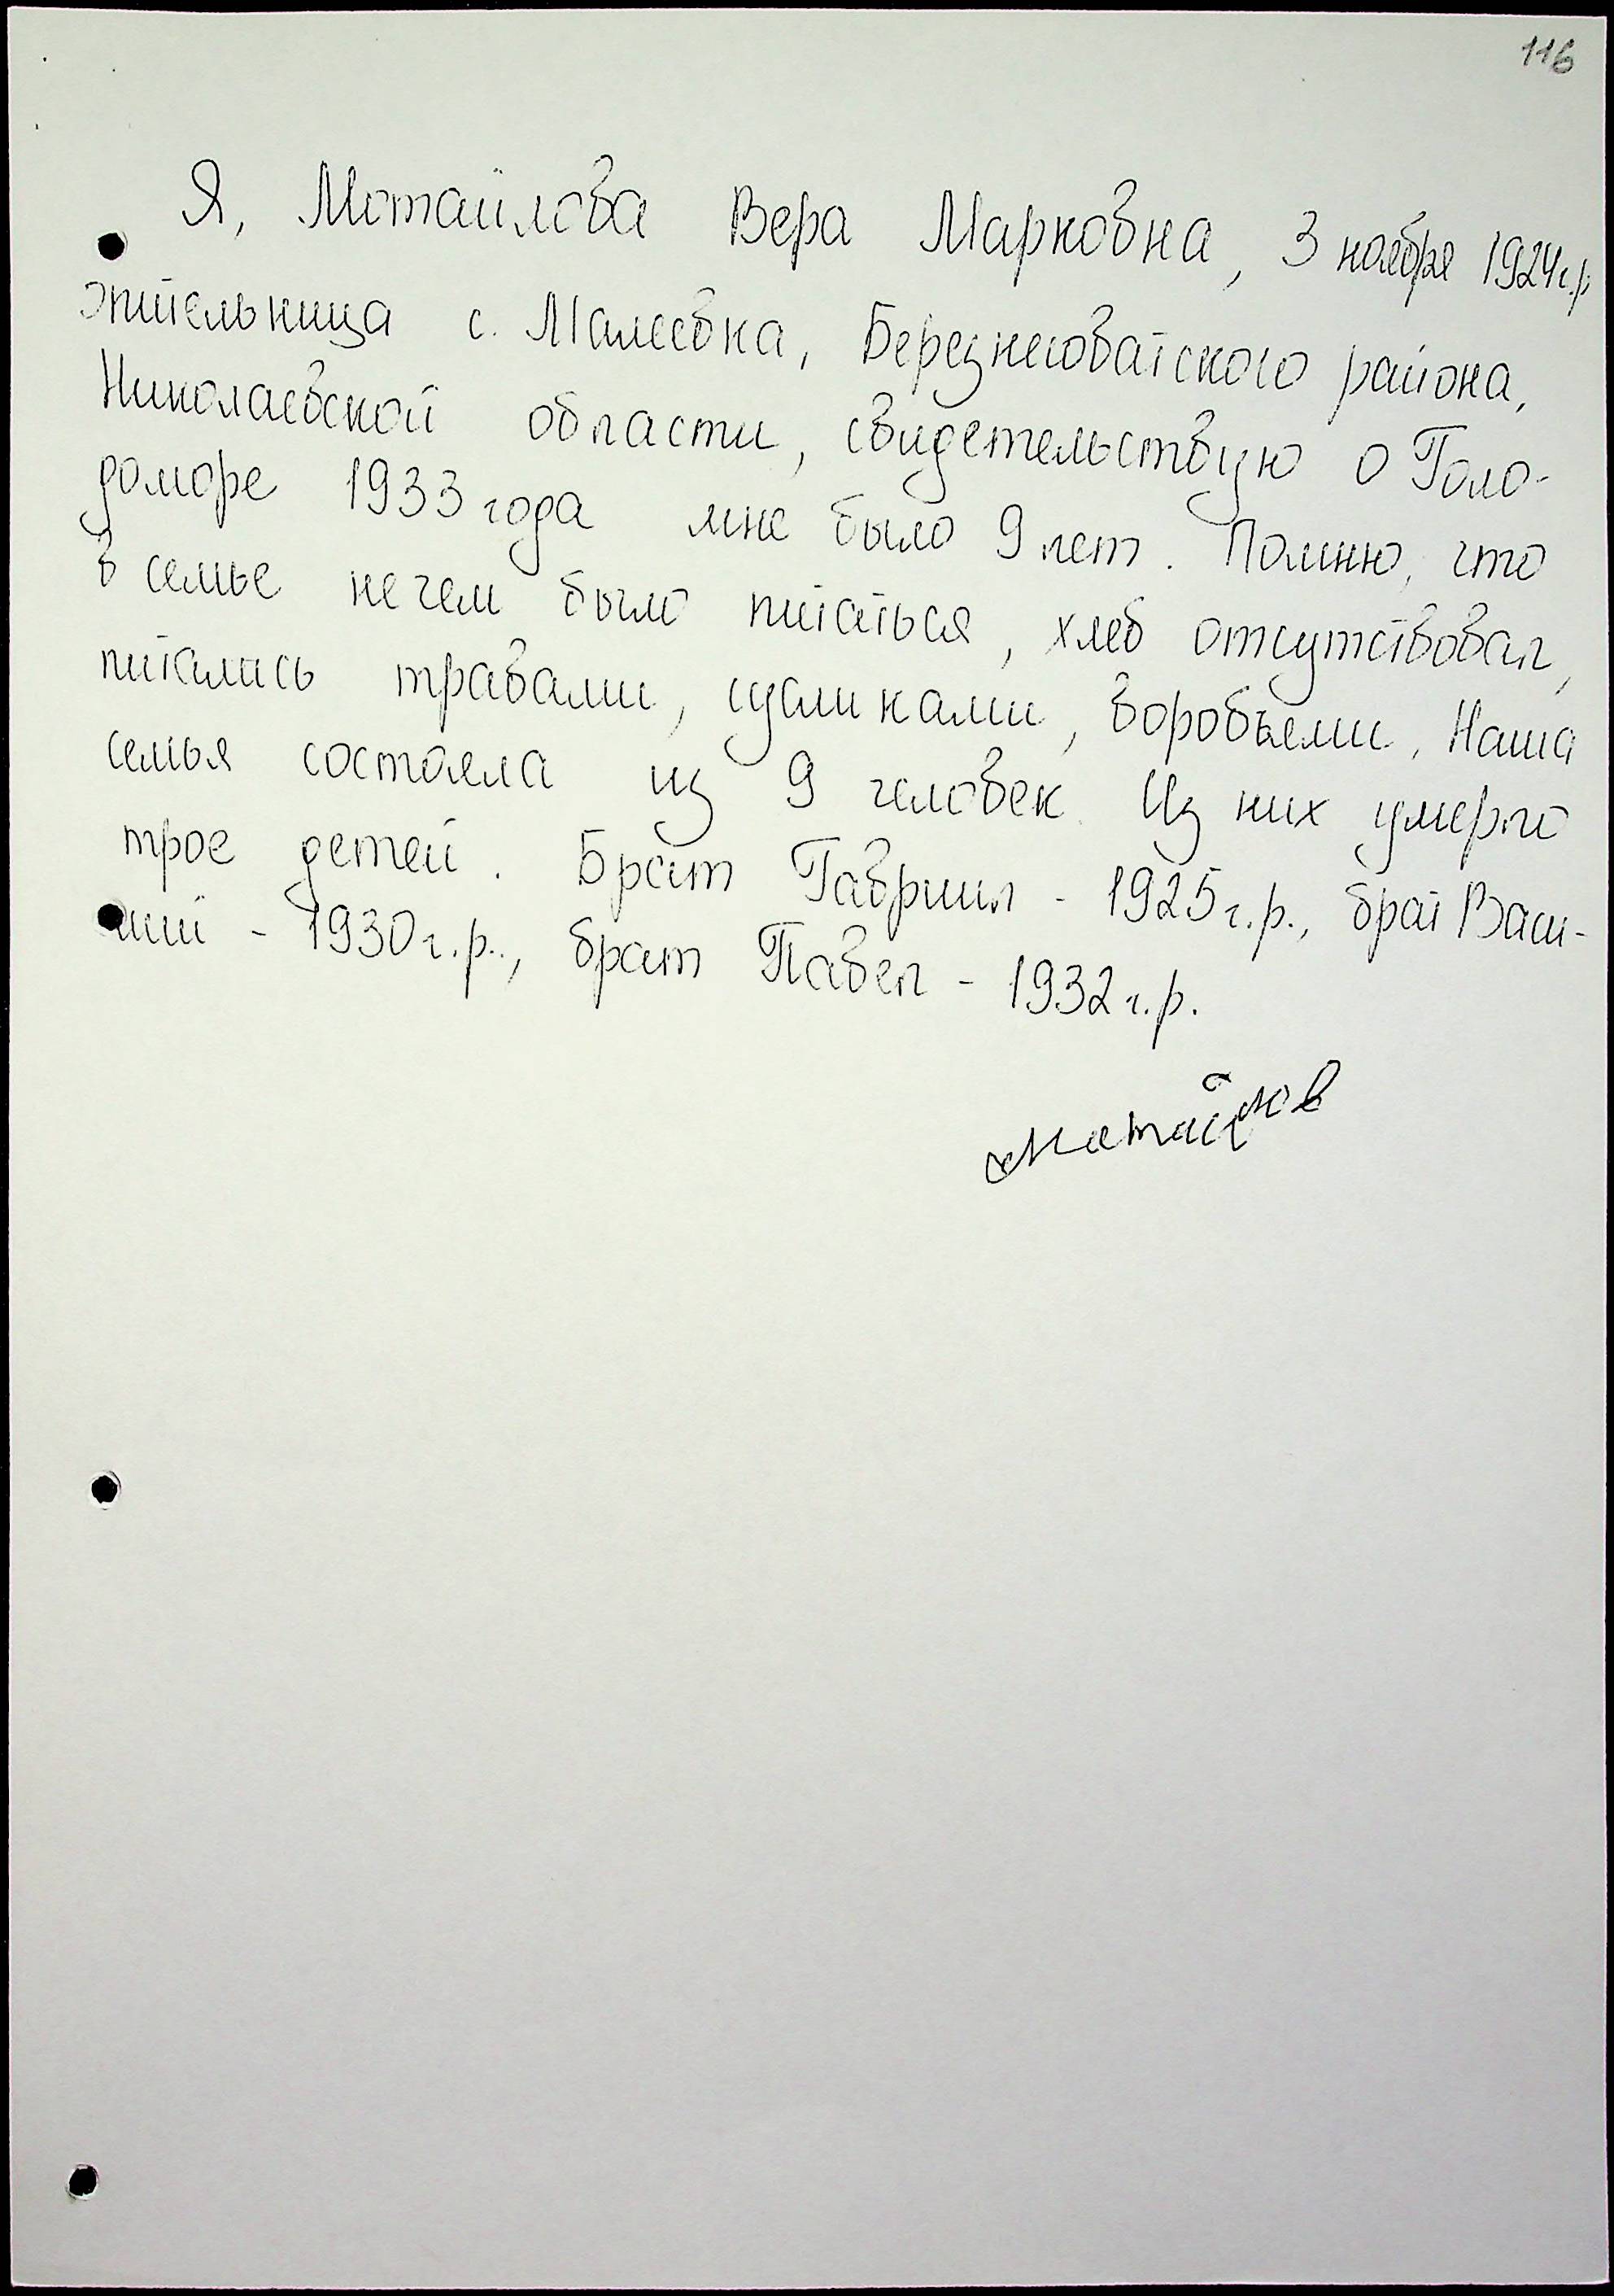 116
Я, Мотайлова Вера Марковна, 3 ноября 1924г.р
жительница с. Малеевка, Березнеговатского района,
Николаевской области, свидетельствую о Голо-
доморе 1933 года мне было 9 лет. Помню, что
в семье нечем было питаться, хлеб отсутствовал,
питались травами, сусликами, воробьями. Наша
семья состояла из 9 человек. Из них умерло
трое детей. Брат Гавриил - 1925г.р., брат Васи-
лий - 1930г.р., брат Павел - 1932г.р.
Мотайлов